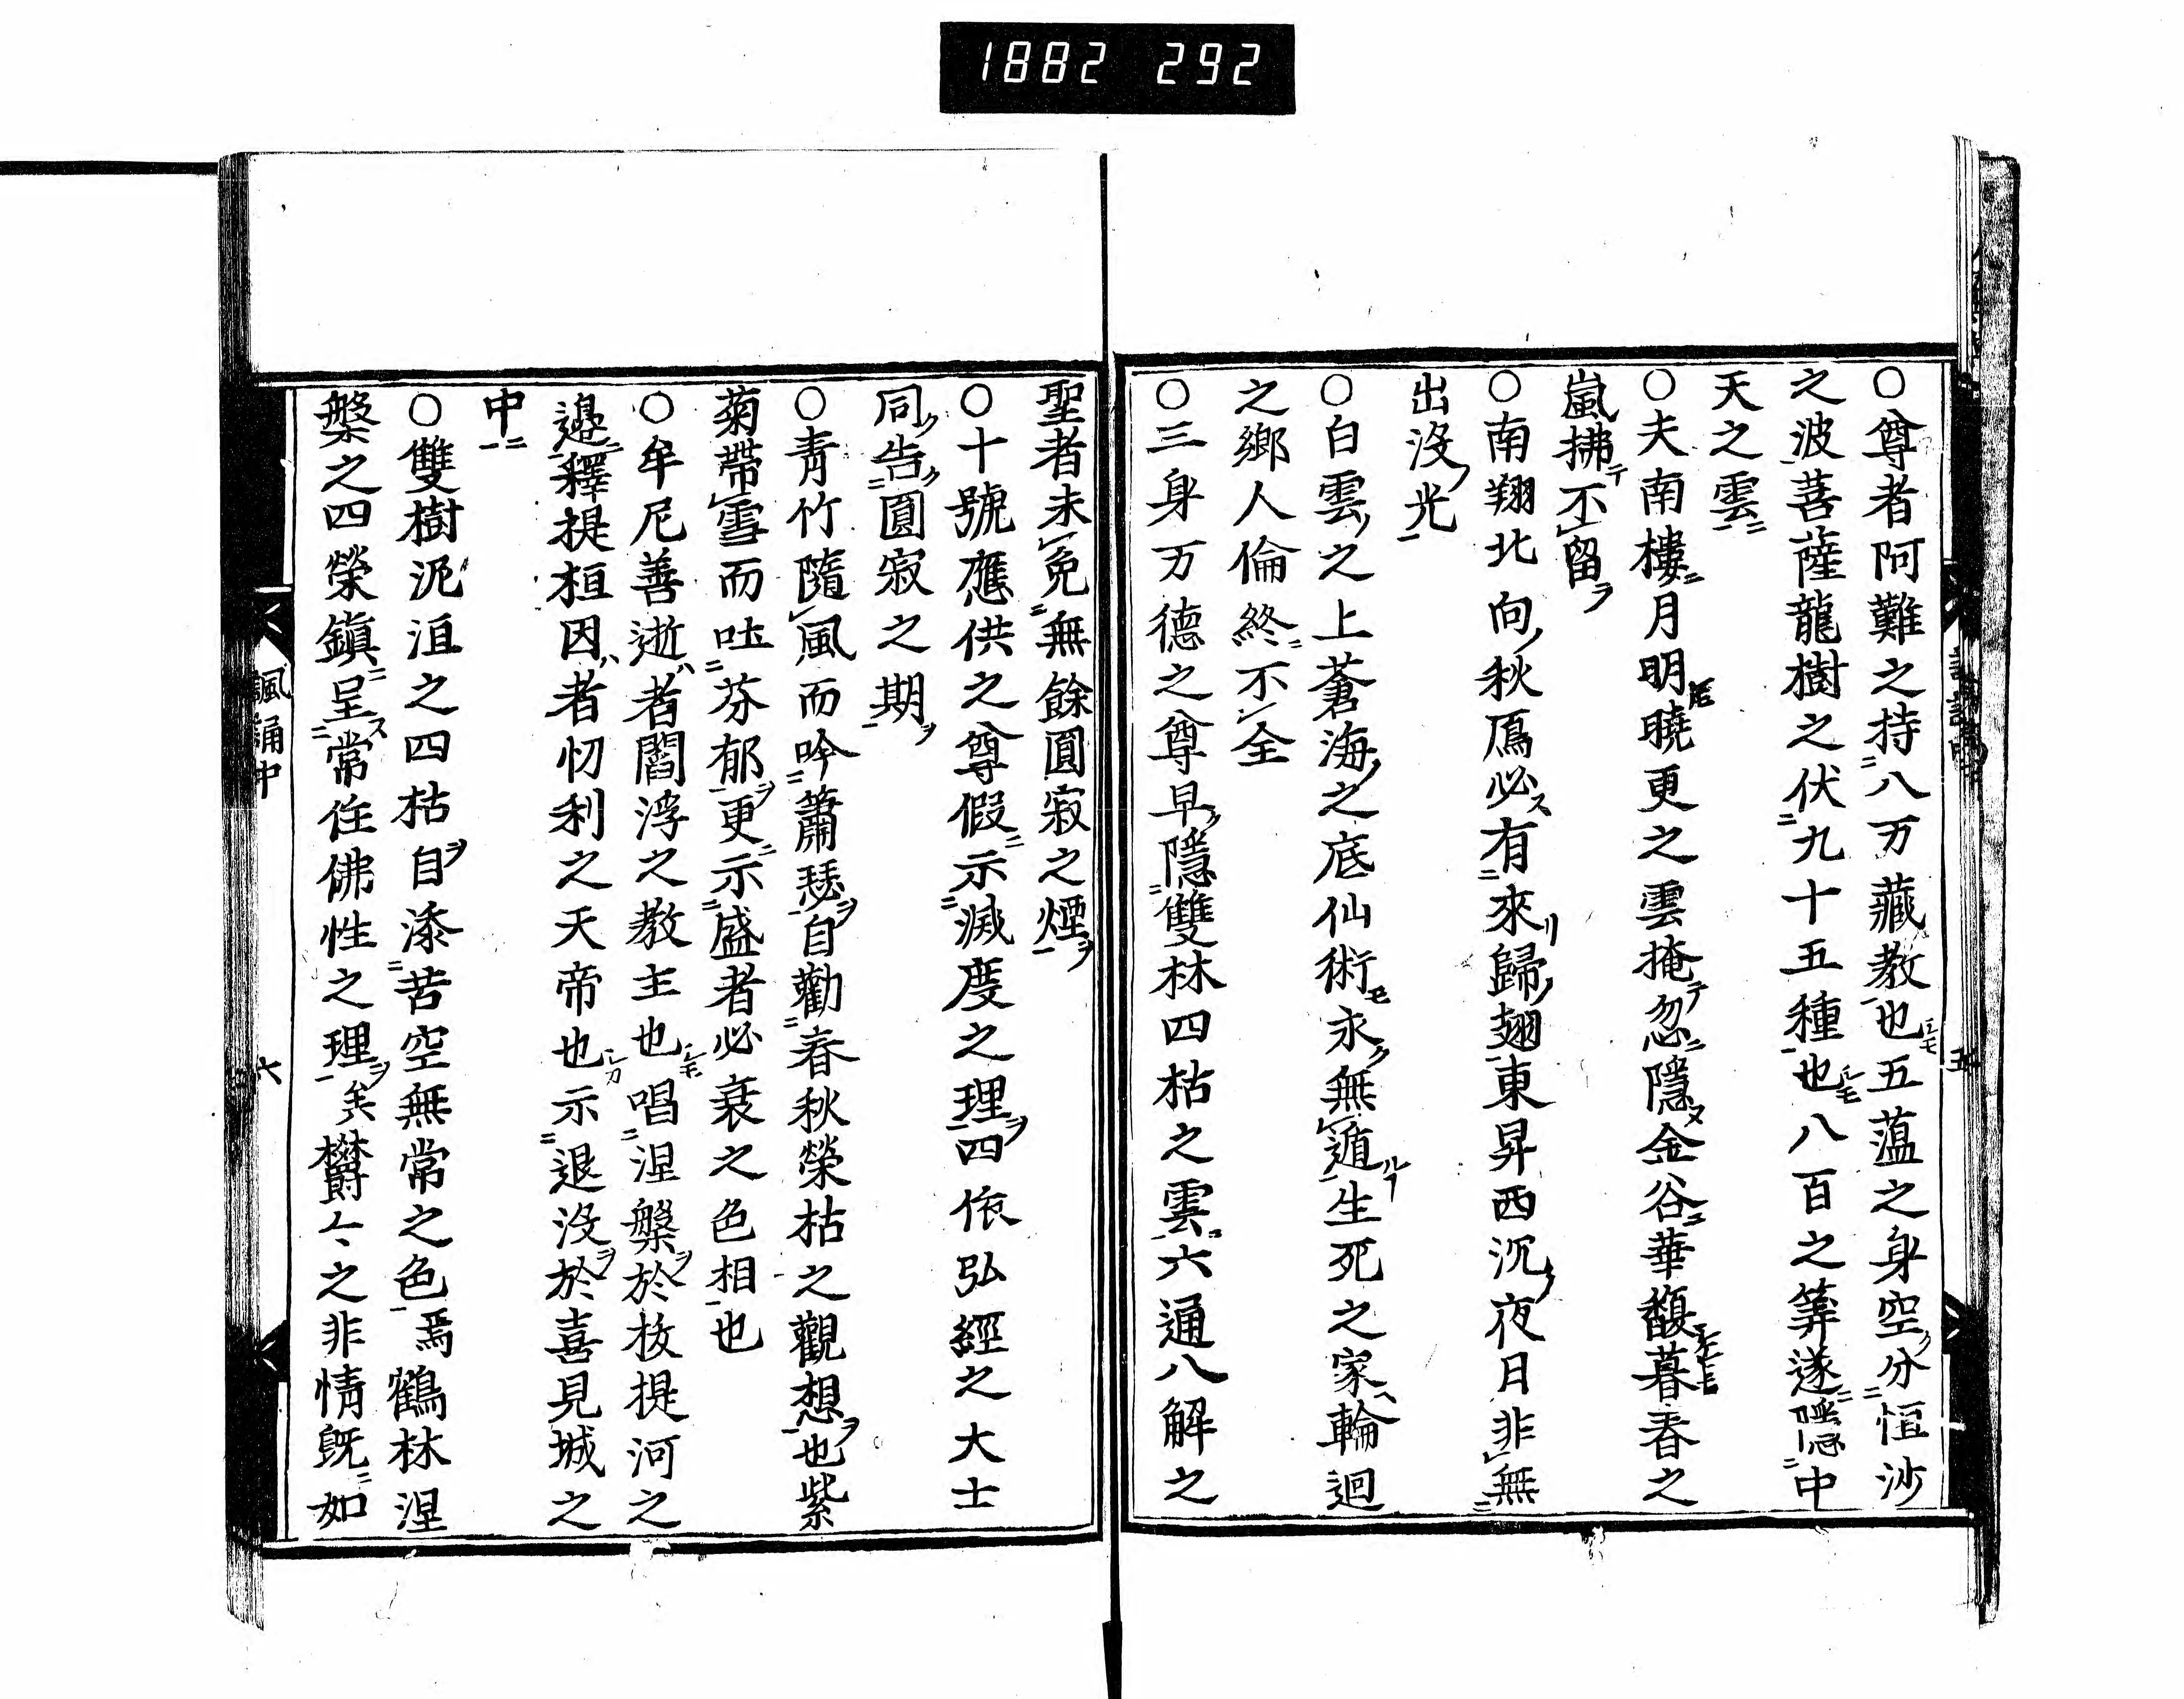 1882 292
○尊者阿難之持八万藏教也五薀之身空分恒沙
之波菩薩龍樹之伏九十五種也八百之筭遂隱中
天之雲
○夫南樓月明曉更之雲掩忽隱金谷華馥暮春之
嵐拂不留
○南翔北向秋鴈必有來歸翅東昇西沉夜月非無
出没光
○白雲之上蒼海之底仙術永無遁生死之家輪迴
之鄉人倫終不全
○三身万德之尊早隱雙林四枯之雲六通八解之
五
聖者未免無餘圓寂之煙
○十號應供之尊假示滅度之理四依弘經之大士
同告圓寂之期
○青竹隨風而吟蕭瑟自勸春秋榮枯之觀想也紫
菊帶雪而吐芬郁更示盛者必衰之色相也
○牟尼善逝者閻浮之教主也唱涅槃於抜提河之
邊釋提桓因者忉利之天帝也示退没於喜見城之
中
○雙樹泥洹之四枯自添苦空無常之色焉鶴林涅
槃之四榮鎭呈常住佛性之理矣欝々之非情既如
諷誦中
六